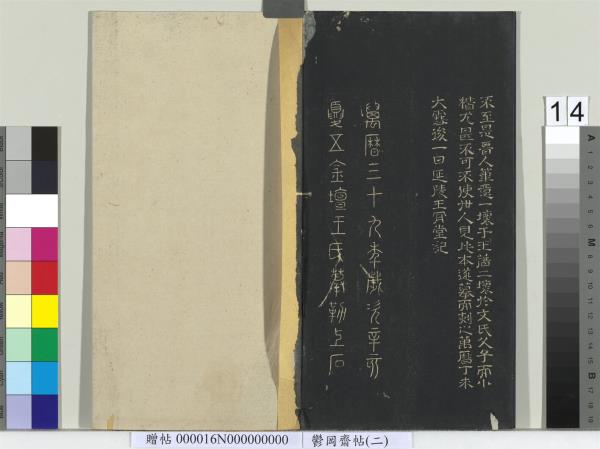 不至是晉人筆意一壞于王著二壞於文氏父子而小
楷尤甚不可不使世人見此本遂摹而刻之萬曆丁未
大雪後一日延陵王肯堂記
萬曆三十九季歲次辛亥
夏五金壇王氏摹勒上石
14
贈帖 000016N000000000
鬱岡齋帖(二)